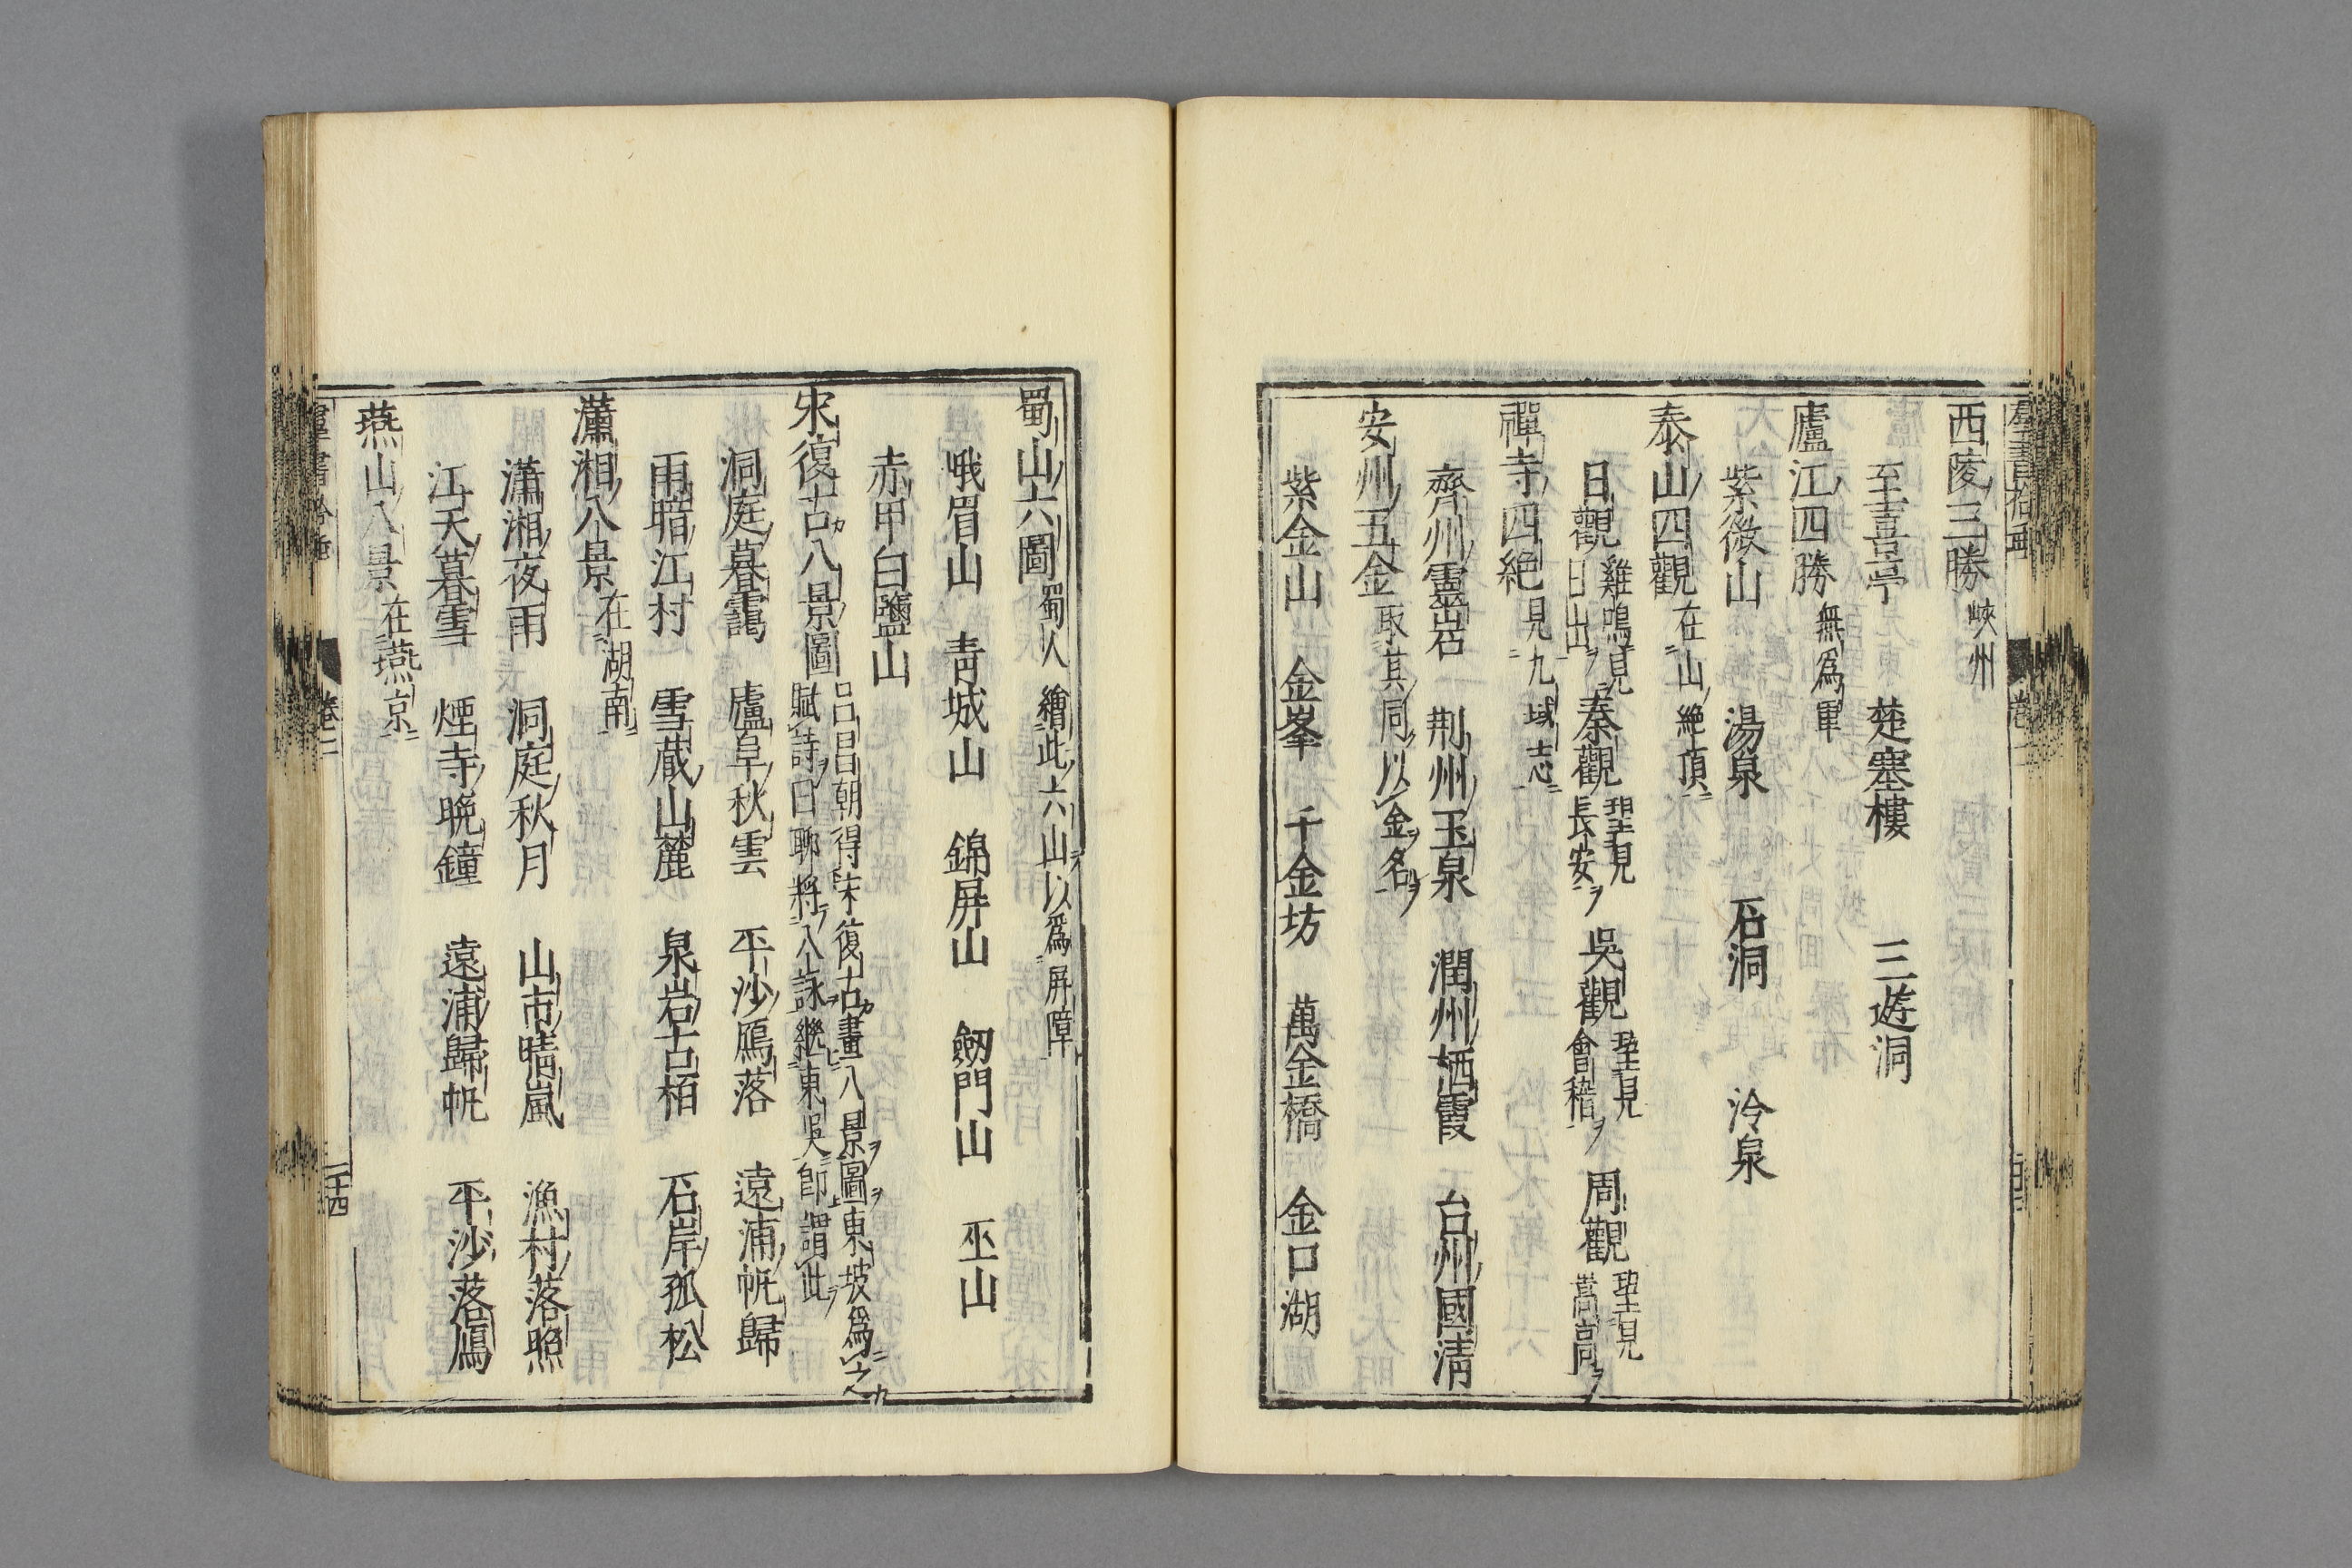 西陵三勝 峽州
至喜亭 楚塞樓 三遊洞
廬江四勝 無爲軍
紫微山 湯泉 石洞 冷泉
泰山四觀 在山絶頂
日觀 雞鳴見日出 秦觀 望見長安 吳觀 望見會稽 周觀 望見嵩高
禪寺四絶 見九域志
齊州靈岩 荆州玉泉 潤州栖霞 台州國清
安州五金 取其同以金名
紫金山 金峯 千金坊 萬金橋 金口湖
蜀山六圖 蜀人繪此六山以爲屏障
峨眉山 靑城山 錦屏山 劔門山 巫山
赤甲白鹽山
宋復古八景圖 呂昌朝得宋復古畫八景圖東坡爲之賦詩曰聊將八詠繼東吳卽謂此
洞庭暮靄 廬阜秋雲 平沙鴈落 遠浦帆歸
雨暗江村 雪藏山麓 泉岩古栢 石岸孤松
瀟湘八景 在湖南
瀟湘夜雨 洞庭秋月 山市晴嵐 漁村落照
江天暮雪 煙寺晩鐘 遠浦歸帆 平沙落鴈
燕山八景 在燕京
卷二
二十四